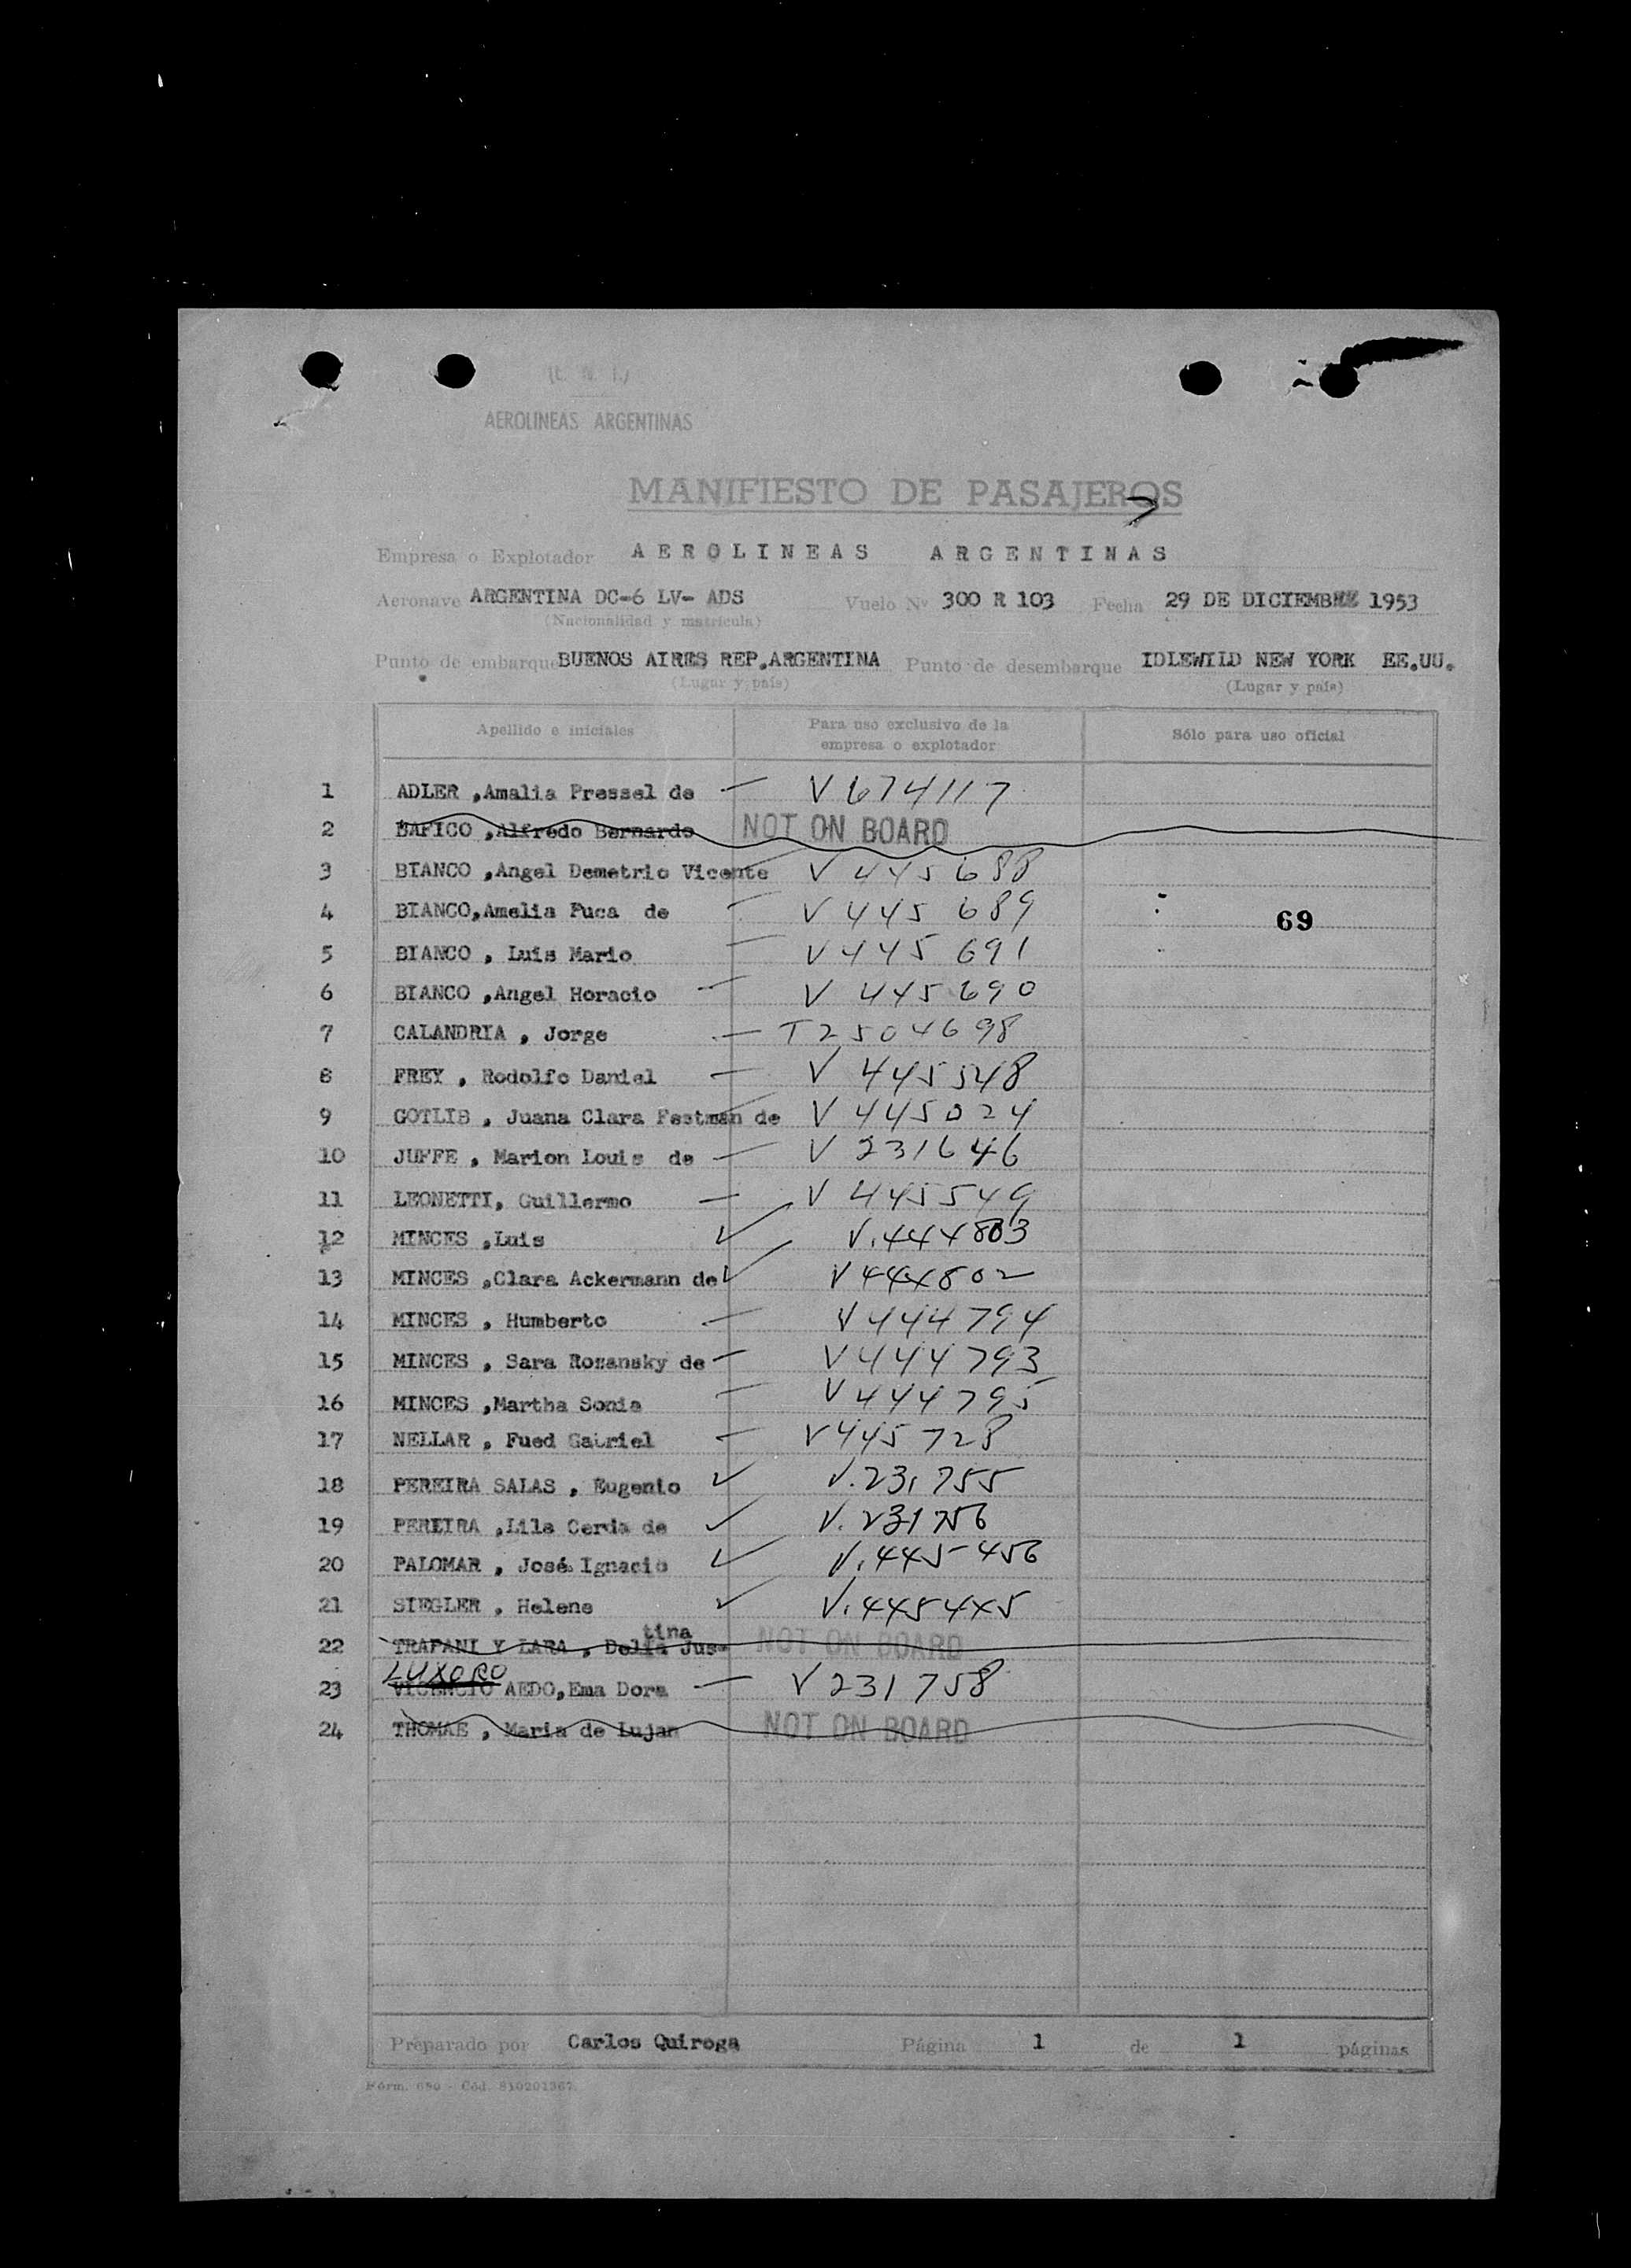 AEROLINEAS ARGENTINAS
MANIFIESTO DE PASAJEROS
Empresa o Explotador AEROLINEAS ARGENTINAS
Aeronave ARGENTINA DC-6 LV- ADS Vuelo Nº 300 R 103 Fecha 29 DE DICIEMBRE 1953
(Nacionalidad y matrícula)
Punto de embarque BUENOS AIRES REP.ARGENTINA Punto de desembarque IDLEWILD NEW YORK EE.UU.
(Lugar y país) (Lugar y país)
Apellido e iniciales Para uso exclusivo de la empresa o explotador Sólo para uso oficial
1 ADLER ,Amalia Pressel de — V 674117
2 BAFICO ,Alfredo Bernardo NOT ON BOARD
3 BIANCO ,Angel Demetrio Vicente V 445688
4 BIANCO,Amelia Fuca de — V 445 689 69
5 BIANCO , Luis Mario — V 445 691
6 BIANCO ,Angel Horacio — V 445690
7 CALANDRIA , Jorge — T2504698
8 FREY , Rodolfo Daniel — V 445548
9 GOTLIB , Juana Clara Festman de V 445024
10 JUFFE , Marion Louis de — V 231646
11 LEONETTI, Guillermo — V 445549
12 MINCES ,Luis ✓ V.444803
13 MINCES ,Clara Ackermann de ✓ V444802
14 MINCES , Humberto — V444794
15 MINCES , Sara Rozansky de — V444793
16 MINCES ,Martha Sonia — V444795
17 NELLAR , Fued Gabriel — V445728
18 PEREIRA SALAS , Eugenio ✓ V.231755
19 PEREIRA ,Lila Cerda de ✓ V.231756
20 PALOMAR , José Ignacio ✓ V.445-456
21 SIEGLER , Helene ✓ V.445445
tina
22 TRAPANI Y LARA , Delia Jus- NOT ON BOARD
LUXORO
23 VICENCIO AEDO,Ema Dora — V231758
24 THOMAE , Maria de Lujan NOT ON BOARD
Preparado por Carlos Quiroga Página 1 de 1 páginas
Fórm. 680 - Cód. 810201367